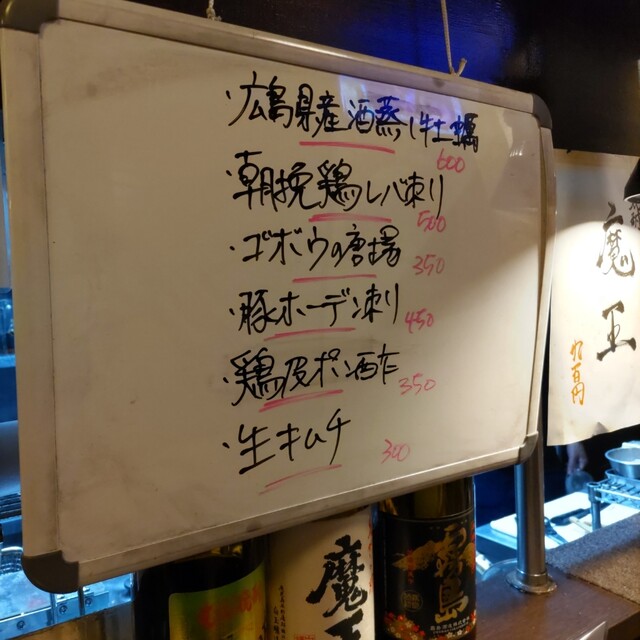 ・広島県産酒蒸し牡蠣
600
・朝挽鶏レバ刺り
500
・ゴボウの唐揚
350
・豚ホーデン刺り
450
・鶏皮ポン酢
350
・生キムチ
300
魔王
魔王
霧島